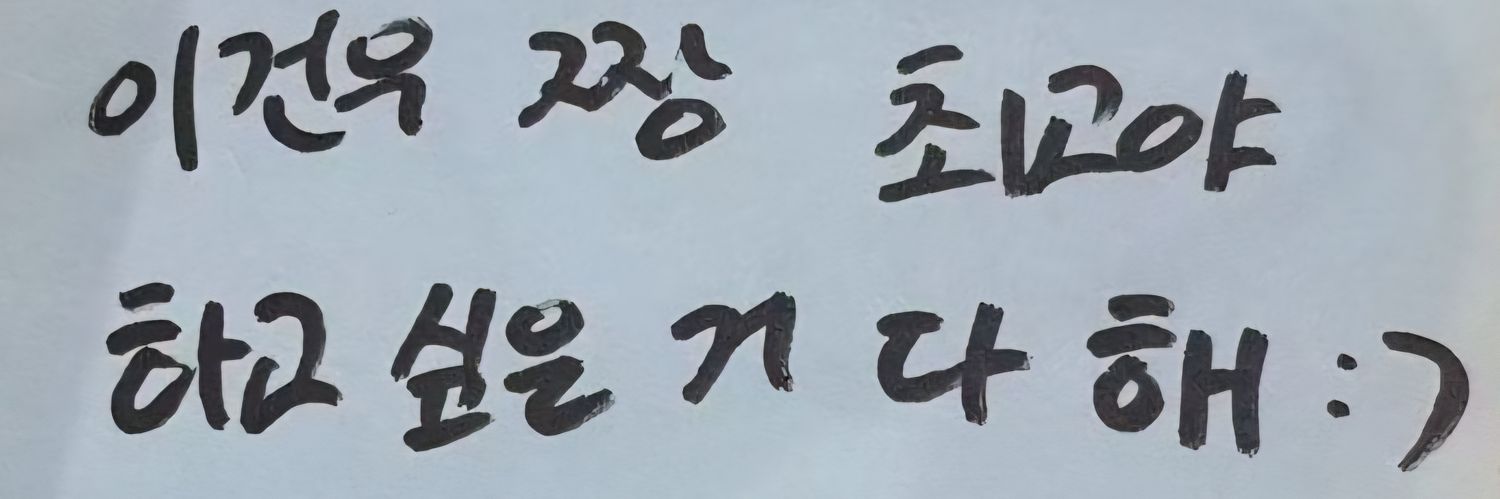 이건우 짱 최고야
하고 싶은 거 다 해 :)